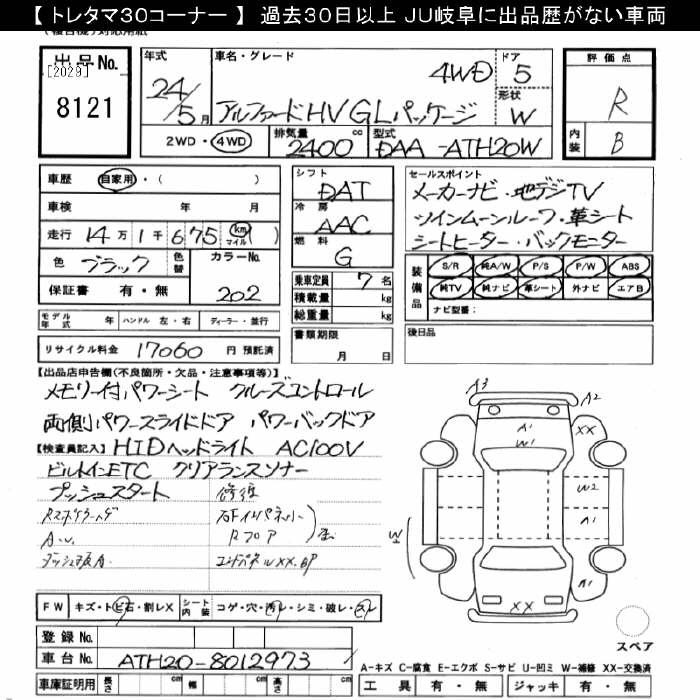 【 トレタマ30コーナー 】 過去30日以上 JU岐阜に出品歴がない車両
出品No.
[2029]
8121
年式
24/5月
車名・グレード
4WD
アルファードHV GLパッケージ
ドア
5
形状
W
評価点
R
内装
B
2WD・4WD
排気量
2400 cc
型式
DAA-ATH20W
車歴 自家用・( )
車検 年 月
走行 14万1千675 km マイル ( )
色 ブラック 色替 カラーNo. 202
保証書 有・無
シフト
DAT
冷房
AAC
燃料
G
セールスポイント
メーカーナビ・地デジTV
ツインムーンルーフ・革シート
シートヒーター・バックモニター
乗車定員 7名
積載量 kg
総重量 kg
装備品
S/R 純A/W P/S P/W ABS
純TV 純ナビ 革シート 外ナビ エアB
ナビ型番:
モデル年式 ハンドル 左・右 ディーラー・並行
書類期限
月 日
後日品
リサイクル料金 17060 円 預託済
【出品店申告欄(不良箇所・欠品・注意事項等)】
メモリー付パワーシート クルーズコントロール
両側パワースライドドア パワーバックドア
【検査員記入】 HIDヘッドライト AC100V
ビルトインETC クリアランスソナー
プッシュスタート
修復
Rフロア
A3
A2
A1
W1
XX
W2
A1
W1
A1
XX
FW キズ・トビ石・割レX シート内装 コゲ・穴・汚レ・シミ・破レ・スレ
登録No.
車台No. ATH20-8012973
スペア
A−キズ C−腐食 E−エクボ S−サビ U−凹ミ W−補修 XX−交換済
車庫証明用 長さ cm 幅 cm 高さ cm
工具 有・無 ジャッキ 有・無